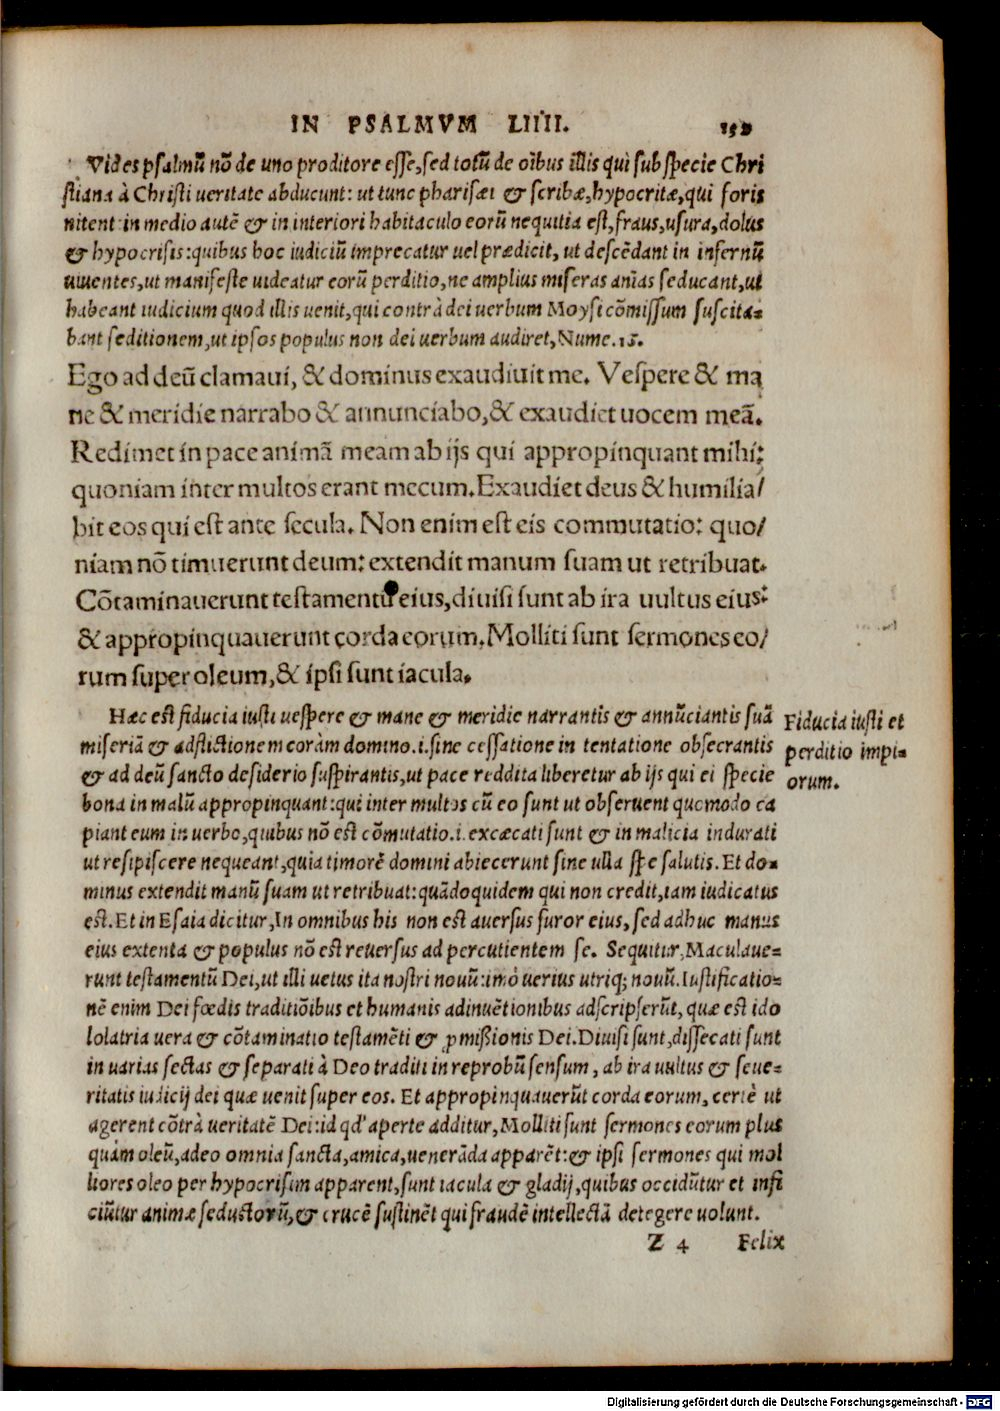 IN PSALMVM LIIII.
Vides psalmũ nõ de uno proditore esse, sed totũ de oĩbus illis qui sub specie Chri
stiana à Christi ueritate abducunt: ut tunc pharisæi & scribæ, hypocritæ, qui foris
nitent: in medio autẽ & in interiori habitaculo eorũ nequitia est, fraus, usura, dolus
& hypocrisis: quibus hoc iudiciũ imprecatur uel prædicit, ut descẽdant in infernũ
uiuentes, ut manifeste uideatur eorũ perditio, ne amplius miseras anĩas seducant, ut
habeant iudicium quod illis uenit, qui contrà dei uerbum Moysi cõmissum suscita=
bant seditionem, ut ipsos populus non dei uerbum audiret, Nume. 15.
Ego ad deũ clamaui, & dominus exaudiuit me. Vespere & ma
ne & meridie narrabo & annunciabo, & exaudiet uocem meã.
Redimet in pace animã meam ab ijs qui appropinquant mihi:
quoniam inter multos erant mecum. Exaudiet deus & humilia/
bit eos qui est ante secula. Non enim est eis commutatio: quo/
niam nõ timuerunt deum: extendit manum suam ut retribuat.
Cõtaminauerunt testamentũ eius, diuisi sunt ab ira uultus eius:
& appropinquauerunt corda eorum. Molliti sunt sermones eo/
rum super oleum, & ipsi sunt iacula.
Hæc est fiducia iusti uespere & mane & meridie narrantis & annũciantis suã
miseriã & adflictionem coràm domino .i. sine cessatione in tentatione obsecrantis
& ad deũ sancto desiderio suspirantis, ut pace reddita liberetur ab ijs qui ei specie
bona in malũ appropinquant: qui inter multos cũ eo sunt ut obseruent quomodo ca
piant eum in uerbo, quibus nõ est cõmutatio .i. excæcati sunt & in malicia indurati
ut resipiscere nequeant, quia timorẽ domini abiecerunt sine ulla spe salutis. Et do=
minus extendit manũ suam ut retribuat: quãdoquidem qui non credit, iam iudicatus
est. Et in Esaia dicitur, In omnibus his non est auersus furor eius, sed adhuc manus
eius extenta & populus nõ est reuersus ad percutientem se. Sequitur, Maculaue=
runt testamentũ Dei, ut illi uetus ita nostri nouũ: imò uerius utriq; nouũ. Iustificatio=
nẽ enim Dei fœdis traditiõibus et humanis adinuẽtionibus adscripserũt, quæ est ido
lolatria uera & cõtaminatio testamẽti & ꝓmißionis Dei. Diuisi sunt, dissecati sunt
in uarias sectas & separati à Deo traditi in reprobũ sensum, ab ira uultus & seue=
ritatis iudicij dei quæ uenit super eos. Et appropinquauerũt corda eorum, certè ut
agerent cõtrà ueritatẽ Dei: id qd' aperte additur, Molliti sunt sermones eorum plus
quàm oleũ, adeo omnia sancta, amica, uenerãda apparẽt: & ipsi sermones qui mol
liores oleo per hypocrisim apparent, sunt iacula & gladij, quibus occidũtur et infi
ciũtur animæ seductorũ, & crucẽ sustinẽt qui fraudẽ intellectã detegere uolunt.
Z 4 Felix
Fiducia iusti et
perditio impi=
orum.
Digitalisierung gefördert durch die Deutsche Forschungsgemeinschaft - DFG